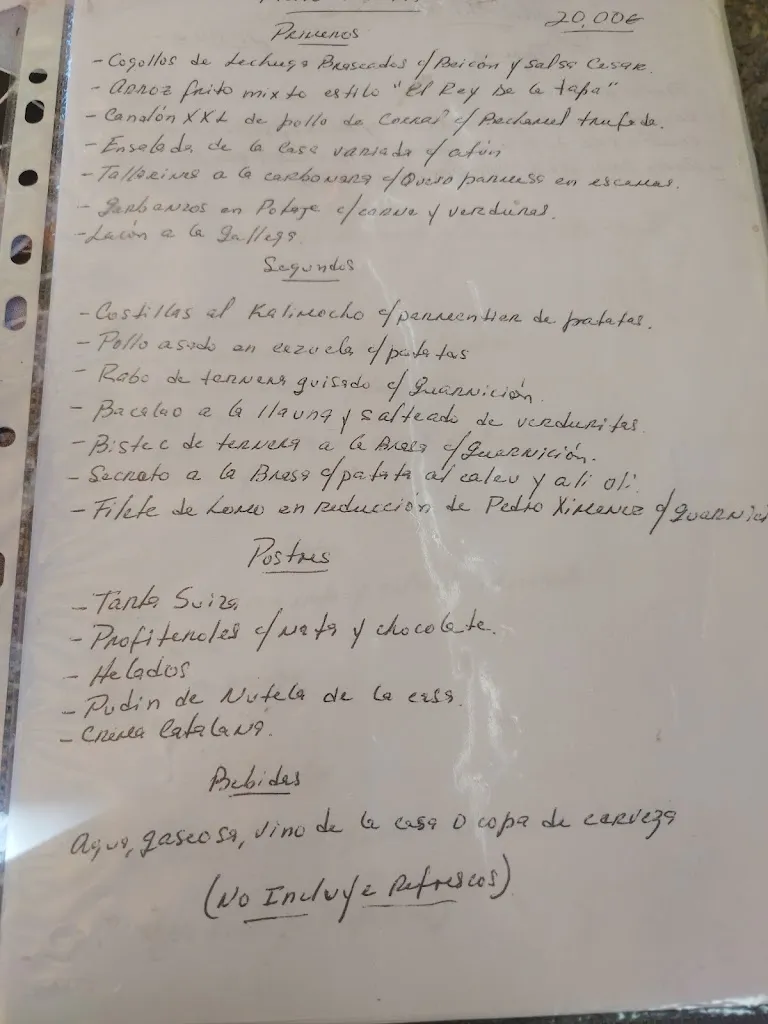 20,00€
Primeros
- Cogollos de Lechuga Braseados c/Beicón y salsa Cesar.
- Arroz frito mixto estilo "El Rey De la tapa"
- Canalón XXL de pollo de Corral c/ Bechamel trufada.
- Ensalada de la casa variada c/ atún
- Tallarines a la carbonara c/Queso parmeso en escamas.
- Garbanzos en Potaje c/carne y verduras.
- Lacón a la gallega.
Segundos
- Costillas al Kalimocho c/parmentier de patatas.
- Pollo asado en cazuela c/patatas
- Rabo de ternera guisado c/ guarnición.
- Bacalao a la llauna y salteado de verduritas.
- Bistec de ternera a la Brasa c/guarnición.
- Secreto a la Brasa c/patata al caleu y ali oli.
- Filete de Lomo en reducción de Pedro Ximenez c/guarnici
Postres
- Tarta Suiza
- Profiteroles c/nata y chocolate.
- Helados
- Pudin de Nutela de la casa.
- Crema Catalana.
Bebidas
Agua, gaseosa, vino de la casa o copa de cerveza
(No Incluye Refrescos)